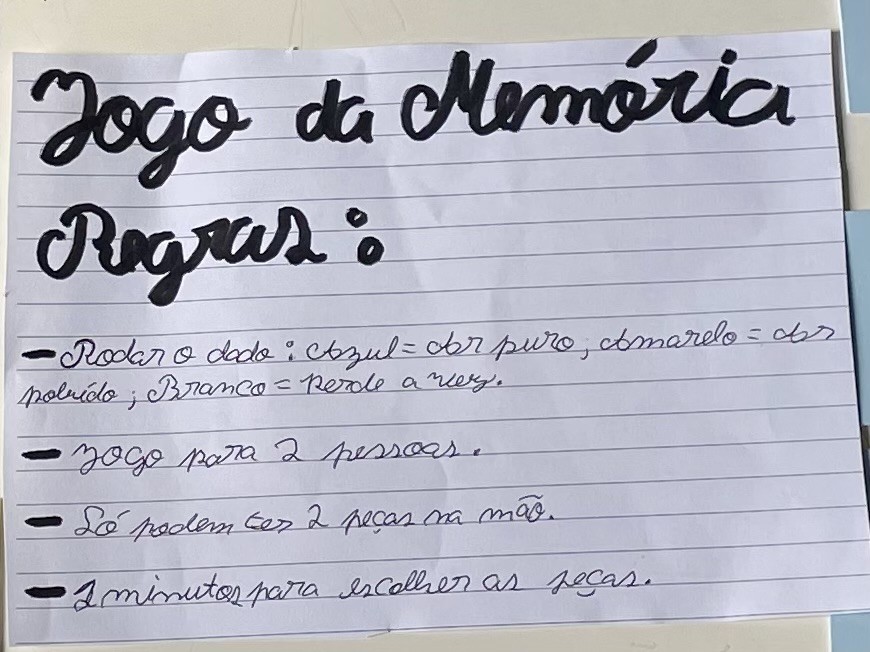 Jogo da Memória
Regras:
- Rodar o dado: Azul = Ar puro; Amarelo = Ar
poluído; Branco = Perde a vez.
- Jogo para 2 pessoas.
- Só podem ter 2 peças na mão.
- 2 minutos para escolher as peças.